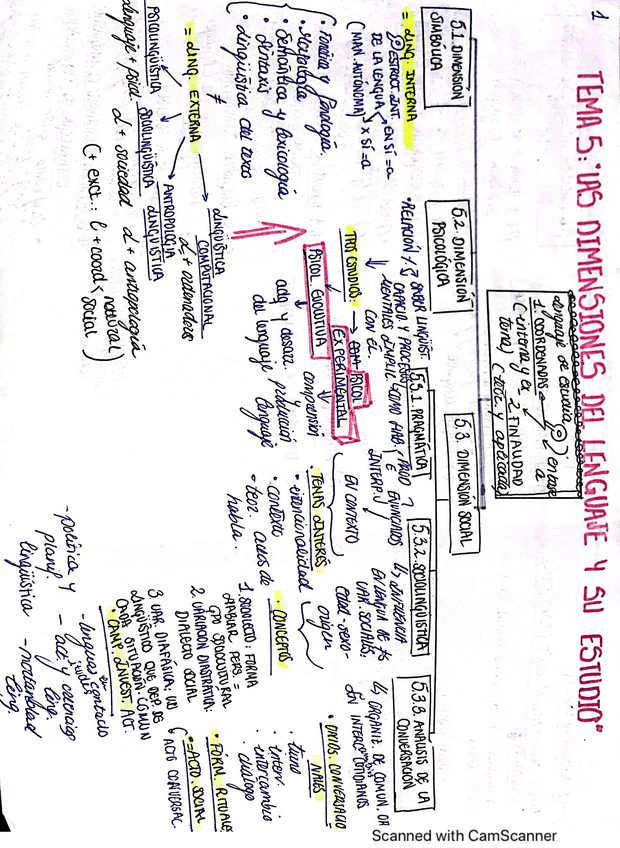 1
TEMA 5: "LAS DIMENSIONES DEL LENGUAJE Y SU ESTUDIO"
1. COORDENADAS
(interna y ex
terna)
2. FINALIDAD
(teór. y aplicada)
2 en base
a
5.1. DIMENSIÓN
SIMBÓLICA
= LING. INTERNA
ESTRUCT. INT.
DE LA LENGUA
EN SÍ = a
X SÍ = a
(MAN. AUTÓNOMA)
• Fonética y fonología.
• Morfología
• Semántica y lexicología
• Sintaxis
• Lingüística del texto
≠
= LING. EXTERNA
PSICOLINGÜÍSTICA
lenguaje + psicol.
SOCIOLINGÜÍSTICA
L + sociedad
ANTROPOLOGÍA
LINGÜÍSTICA
L + antropología
LINGÜÍSTICA
COMPUTACIONAL
L + ordenadores
(+ exct.: L + coord
natural
social)
5.2. DIMENSIÓN
PSICOLÓGICA
• RELACIÓN
SABER LINGÜIST.
CAPACID Y PROCESOS
MENTALES IMPLIC.
CON ÉL.
TIPOS ESTUDIOS:
PSICOL. EVOLUTIVA
adq y desarr.
del lenguaje
PSICOL
EXPERIMENTAL
comprensión
y
producción
lenguaje
5.3. DIMENSIÓN SOCIAL
5.3.1. PRAGMÁTICA
CÓMO
PROD
E
INTERP.
ENUNCIADOS
EN CONTEXTO
TEMAS INTERÉS
• intencionalidad
• contexto
• teor. actos de
habla.
5.3.2. SOCIOLINGÜÍSTICA
INFLUENCIA
EN LENGUA DE
VAR. SOCIALES:
EDAD - SEXO -
origen
• CONCEPTOS
1. SOCIOLECTO: FORMA
HABLAR PERS. =
GPO SOCIOCULTURAL
2. VARIACIÓN DIASTRÁTICA:
DIALECTO SOCIAL
3 VAR. DIAFÁSICA: USO
LINGÜÍSTICO QUE DEP. DE
CADA SITUACIÓN COMUN
• CAMP. INVEST. ACT.
- lenguas en contacto
- política y
planif.
lingüística
- act y
ling.
- mortandad
ling.
5.3.3. ANÁLISIS DE LA
CONVERSACIÓN
ORGANIZ. DE COMUN. OR
EN INTERCAMBIOS
COTIDIANOS
• UNIDS. CONVERSACIO
NALES
• turno
• interv.
• intercambio
• diálogo
• FÓRM. RITUALES
• = ACTO SOCIAL
ACTO CONVERSAC.
Scanned with CamScanner